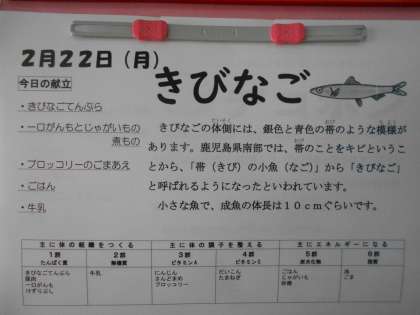 2月22日（月）
きびなご
今日の献立
・きびなごてんぷら
・一口がんもとじゃがいもの
煮もの
・ブロッコリーのごまあえ
・ごはん
・牛乳
きびなごの体側には、銀色と青色の帯のような模様が
あります。鹿児島県南部では、帯のことをキビということ
とから、「帯（きび）の小魚（なご）」から「きびなご」
と呼ばれるようになったといわれています。
小さな魚で、成魚の体長は10cmぐらいです。
主に体の組織をつくる 主に体の調子を整える 主にエネルギーになる
1群 2群 3群 4群 5群 6群
たんぱく質 無機質 ビタミンA ビタミンC 炭水化物 脂質
きびなごてんぷら 牛乳 にんじん だいこん ごはん 油
さんどまめ たまねぎ じゃがいも ごま
一口がんも ブロッコリー 砂糖
けずりぶし